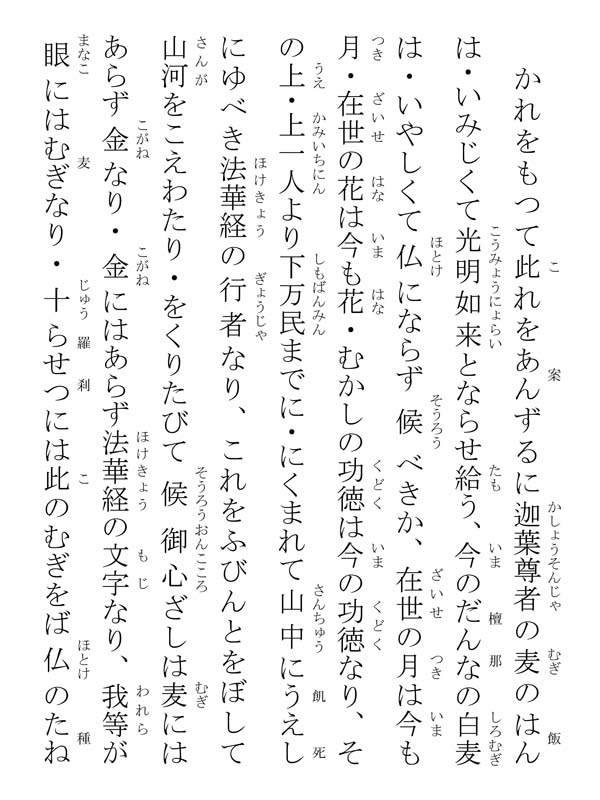 かれをもつて此れをあんずるに迦葉尊者の麦のはん
は・いみじくて光明如来とならせ給う、今のだんなの白麦
は・いやしくて仏にならず候べきか、在世の月は今も
月・在世の花は今も花・むかしの功徳は今の功徳なり、そ
の上・上一人より下万民までに・にくまれて山中にうえし
にゆべき法華経の行者なり、これをふびんとをぼして
山河をこえわたり・をくりたびて候御心ざしは麦には
あらず金なり・金にはあらず法華経の文字なり、我等が
眼にはむぎなり・十らせつには此のむぎをば仏のたね